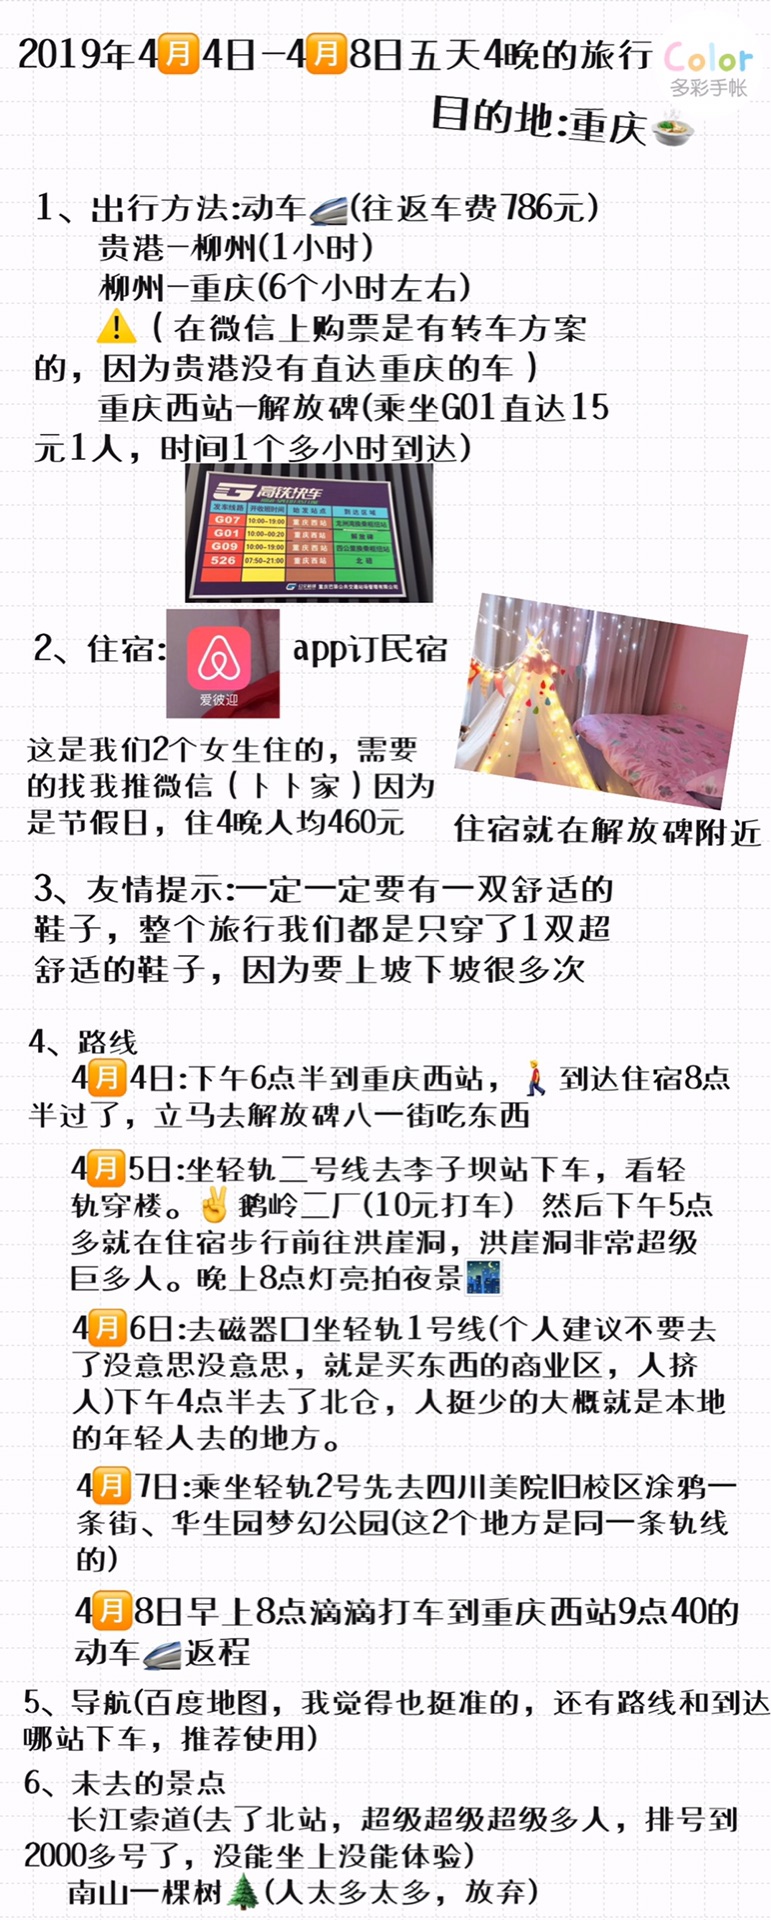 2019年4月4日-4月8日五天4晚的旅行
Color
多彩手帐
目的地:重庆
1、出行方法:动车(往返车费786元)
贵港-柳州(1小时)
柳州-重庆(6个小时左右)
(在微信上购票是有转车方案
的，因为贵港没有直达重庆的车)
重庆西站-解放碑(乘坐G01直达15
元1人，时间1个多小时到达)
高铁快车
发车线路 开收班时间 始发站点 到达区域
G07 10:00-19:00 重庆西站
G01 10:00-00:20 重庆西站 解放碑
G09 10:00-19:00 重庆西站
526 07:50-21:00 重庆西站 北碚
2、住宿:
爱彼迎
app订民宿
这是我们2个女生住的，需要
的找我推微信(卜卜家)因为
是节假日，住4晚人均460元
住宿就在解放碑附近
3、友情提示:一定一定要有一双舒适的
鞋子，整个旅行我们都是只穿了1双超
舒适的鞋子，因为要上坡下坡很多次
4、路线
4月4日:下午6点半到重庆西站，到达住宿8点
半过了，立马去解放碑八一街吃东西
4月5日:坐轻轨二号线去李子坝站下车，看轻
轨穿楼。鹅岭二厂(10元打车) 然后下午5点
多就在住宿步行前往洪崖洞，洪崖洞非常超级
巨多人。晚上8点灯亮拍夜景
4月6日:去磁器口坐轻轨1号线(个人建议不要去
了没意思没意思，就是买东西的商业区，人挤
人)下午4点半去了北仓，人挺少的大概就是本地
的年轻人去的地方。
4月7日:乘坐轻轨2号先去四川美院旧校区涂鸦一
条街、华生园梦幻公园(这2个地方是同一条轨线
的)
4月8日早上8点滴滴打车到重庆西站9点40的
动车返程
5、导航(百度地图，我觉得也挺准的，还有路线和到达
哪站下车，推荐使用)
6、未去的景点
长江索道(去了北站，超级超级超级多人，排号到
2000多号了，没能坐上没能体验)
南山一棵树(人太多太多，放弃)